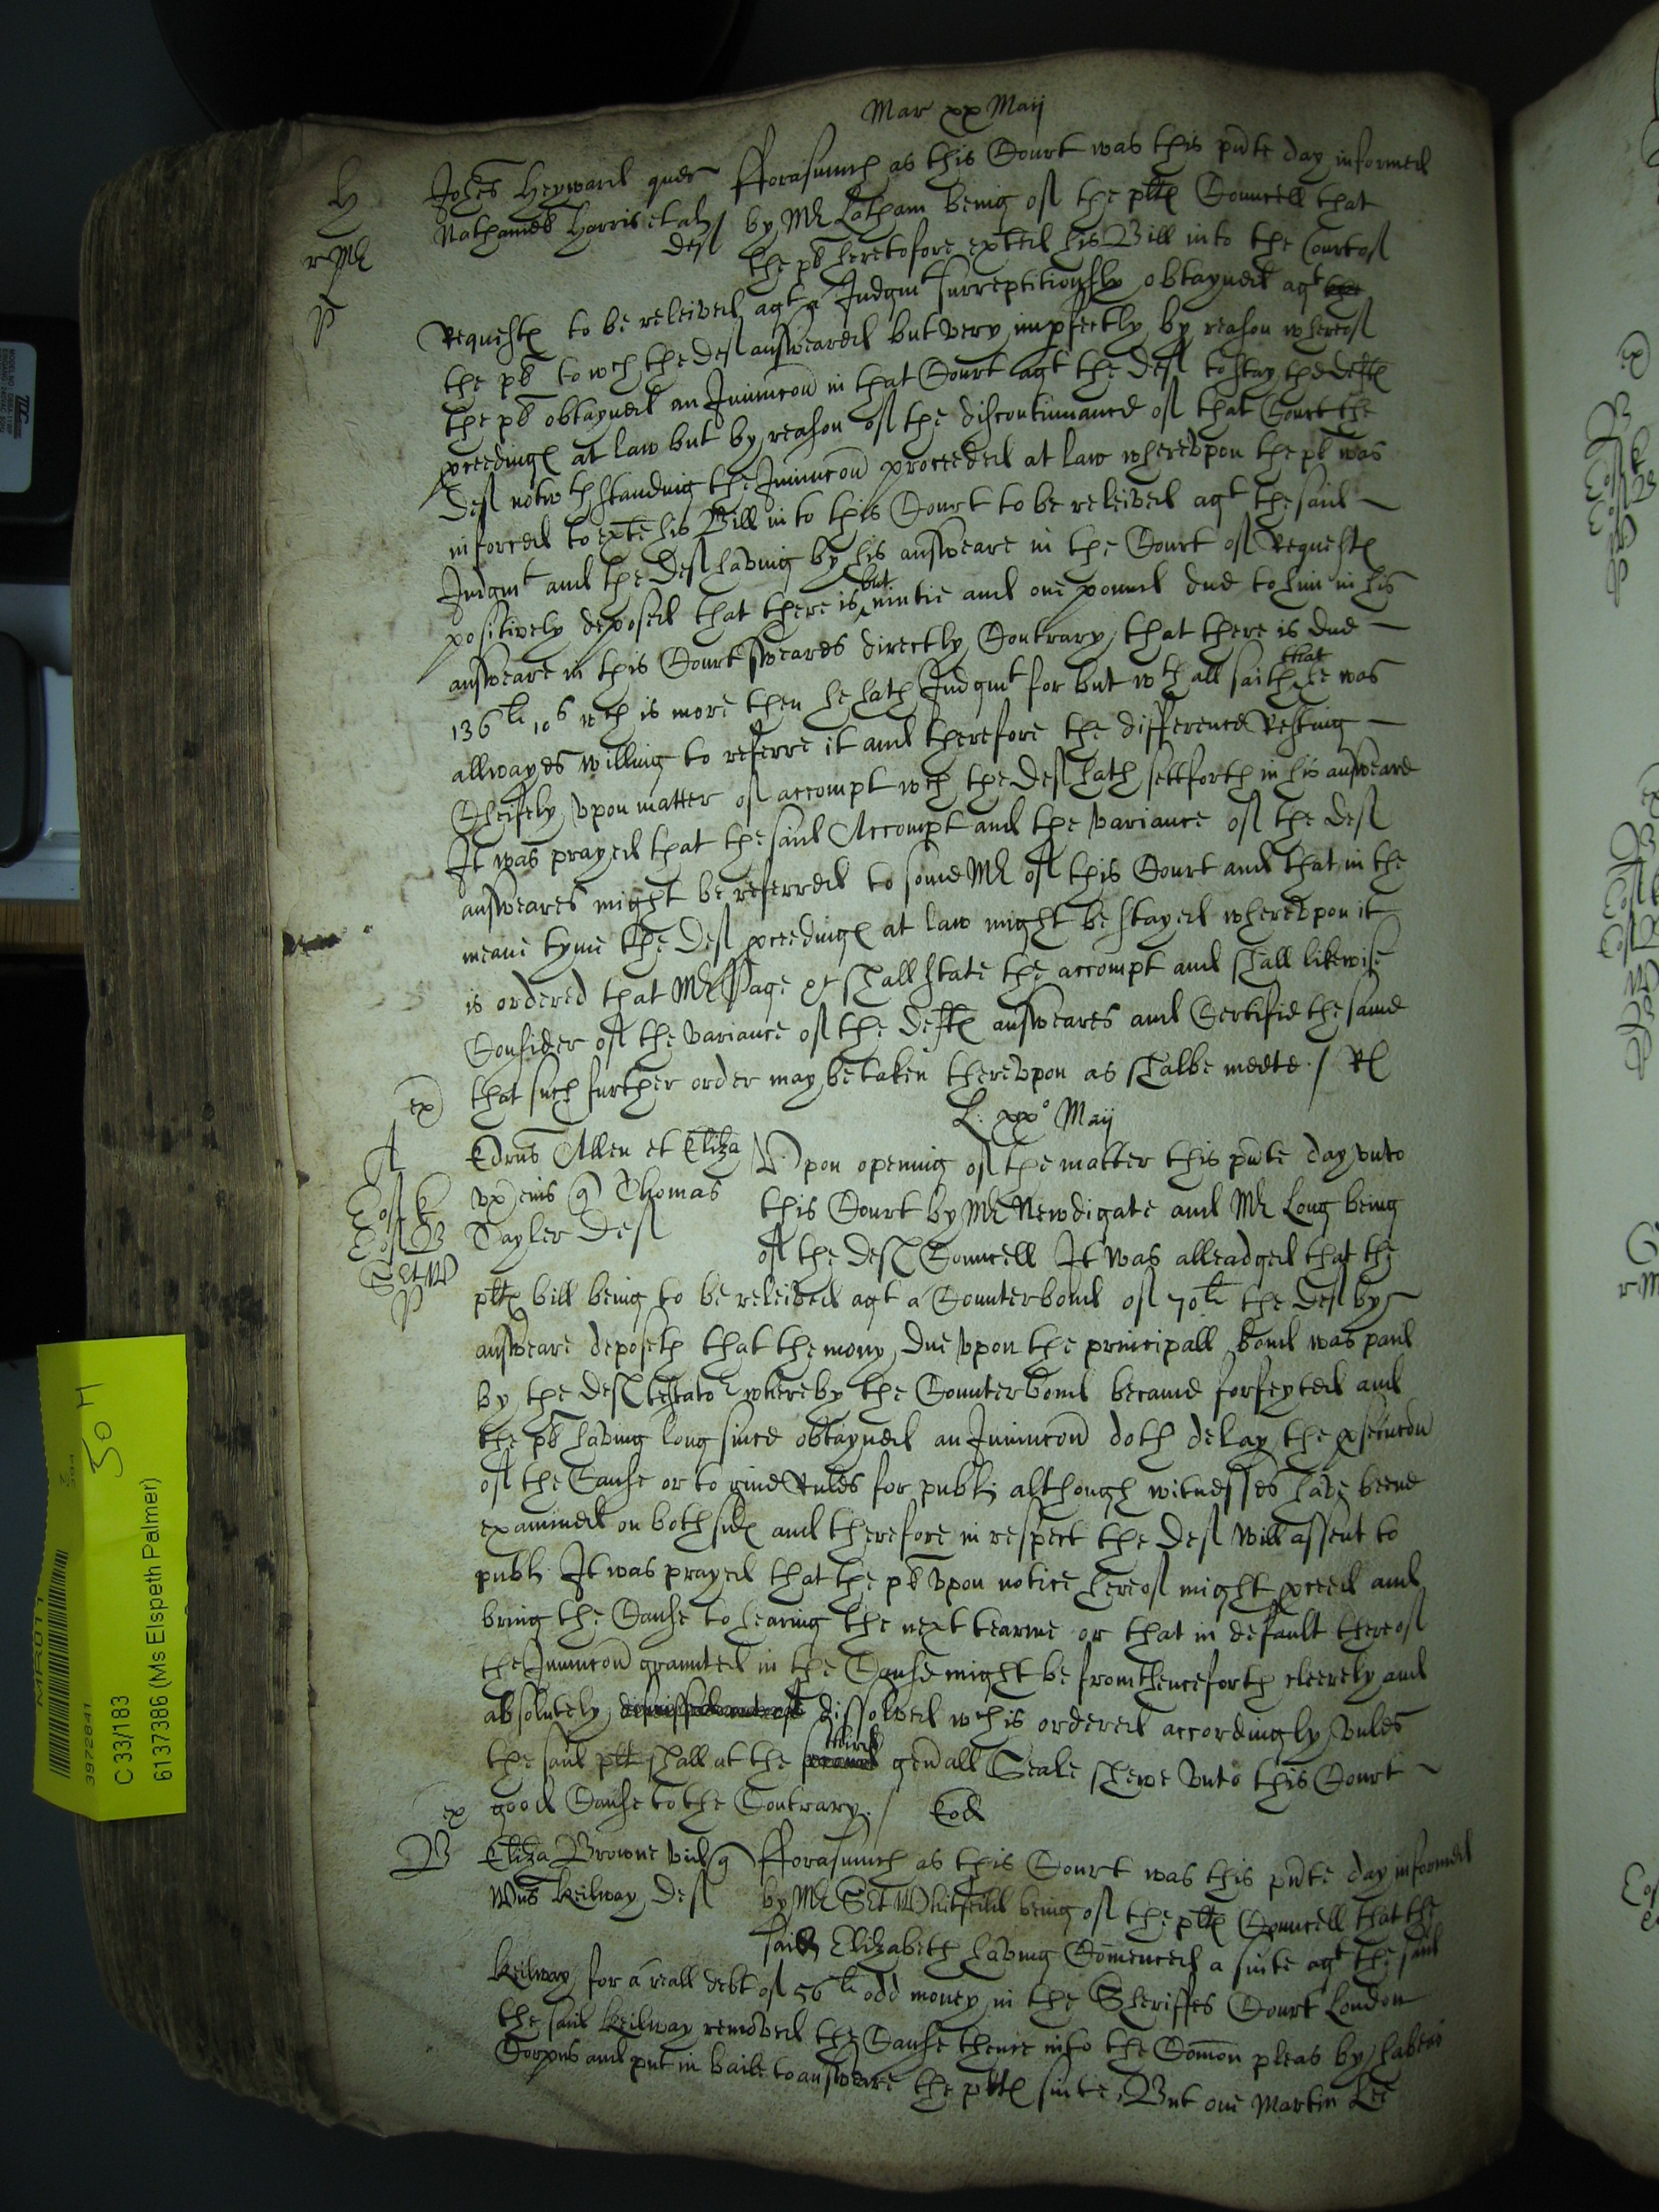 Mar xx Maij
H
r Mr
P
Johes Heyward quer fforasmuch as this Court was this pnte day informed
Nathaniell Harris et als by Mr Latham being of the plts Councell that
def the pl heretofore exhted his Bill into the Court of
Requests to be releived agt a Judgmt surreptitiously obtayned agt
the pl to wch the def answeared but very impfectly by reason whereof
the pl obtayned an Iniuncon in that Court agt the def to stay the defts
pceedings at law but by reason of the discontinuance of that Court the
def notwthstanding the Iniuncon proceeded at law wherevpon the pl was
inforced to exhte his Bill in to this Court to be releived agt the said
Judgmt and the def having by his answeare in the Court of Requests
positively deposed that there is but nintie and one pound due to him in his
answeare in this Court sweares directly Contrary that there is due
136li 10s wch is more then he hath Judgmt for but wthall saith that he was
allwayes willing to referre it and therefore the difference Resting
Cheifely vpon matter of accompt wch the def hath settforth in his answeare
It was prayed that the said Accompt and the variance of the def
answeares might be referred to some Mr of this Court and that in the
meane tyme the def pceedings at law might be stayed wherevpon it
is ordered that Mr Page et shall state the accompt and shall likewise
Consider of the variance of the defts answeares and Certifie the same
that such further order may be taken therevpon as shalbe meete / Rl
ex
L. xx° Maij
A
Edrus Allen et Eliza Vpon opening of the matter this pnte day vnto
vx eius q Thomas this Court by Mr Newdigate and Mr Long being
Tayler def of the defs Councell It was alleadged that the
plts bill being to be releived agt a Counterbond of 70li the def by
answeare deposeth that the mony due vpon the principall bond was paid
by the defs testator whereby the Counterbond became forfeyted and
the pl having long since obtayned an Iniuncon doth delay the psecucon
of the Cause or to giue Rules for publ although witnesses have beene
examined on both sids and therefore in respect the def will assent to
publ It was prayed that the pl vpon notice hereof might pceed and
bring the Cause to hearing the next tearme or that in default thereof
the Iniuncon graunted in the Cause might be from thenceforth cleerely and
absolutely dissolved wch is ordered accordingly vnles
the said plt shall at the third genall Seale shewe vnto this Court
good Cause to the Contrary. / Eod
ex
B
Eliza Browne vid q fforasmuch as this Court was this pnte day informed
Wus Keilway def by Mr SEt Whitfeild being of the plts Councell that the
said Elizabeth having Comenced a suite agt the said
Keilway for a reall debt of 56li odd money in the Sheriffes Court London
the said Keilway removed the Cause thence into the Comon pleas by habeas
Corpus and put in baile to answeare the plts suite, But one Martin Lee
30 H
3972841
C 33/183
6137386 (Ms Elspeth Palmer)